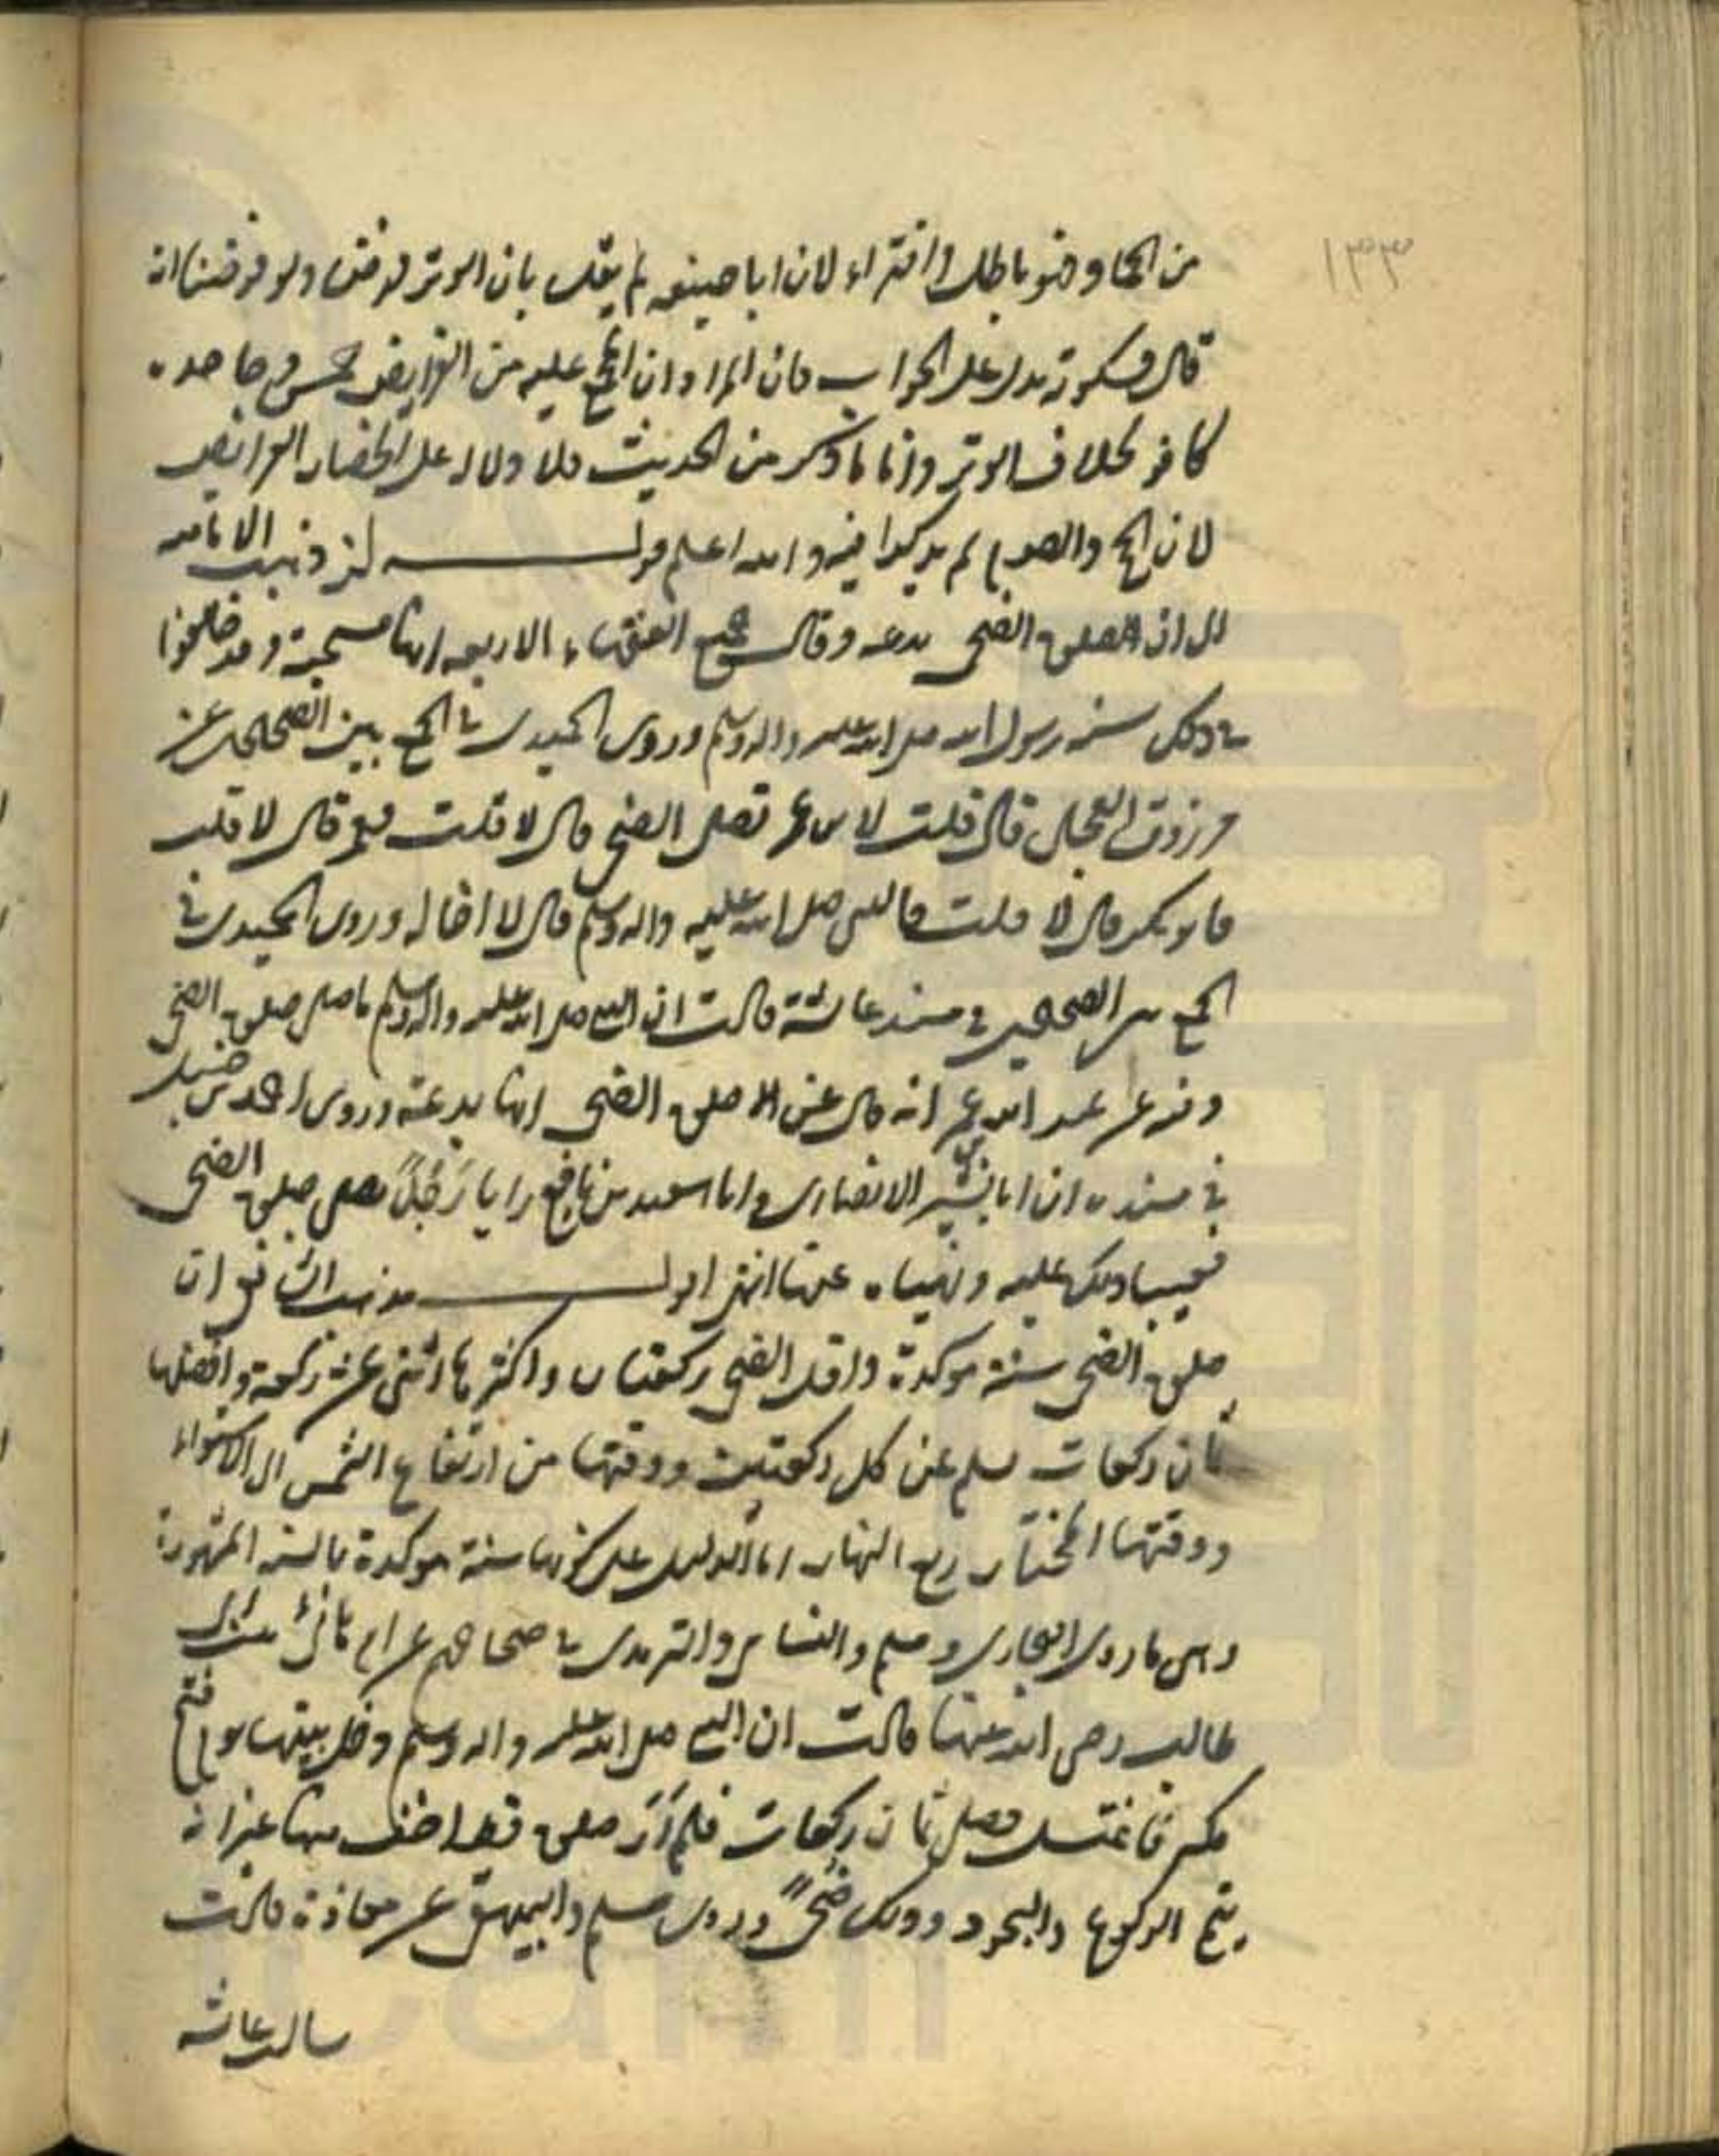 ١٣٣
من الحمار فهو باطل وافتراء لان ابا حنيفه لم يقل بان الوتر فرض ولو فرضنا انه
قال فسكوته يدل على الجواب فان المراد ان المجمع عليه من الفرايض خمس وجاحده
كافر بخلاف الوتر واما ما ذكر من الحديث فلا دلاله على انحصار الفرايض
لان الحج والصوم لم يذكرا فيه والله اعلم قوله لز ذهبت الاماميه
الى ان الصلوة الضحى بدعه وقال جميع الفقهاء الاربعه انها مستحبة وقد خالفوا
في ذلك سنه رسول الله صلى الله عليه واله وسلم وروى الحميدى في الجمع بين الصحيحين عن
مرزوق العجلى قال قلت لابن عمر تصلى الضحى قال لا قلت فعمر قال لا قلت
فابو بكر قال لا قلت فالنبى صلى الله عليه واله وسلم قال لا اخاله وروى الحميدى في
الجمع بين الصحيحين في مسند عائشة قالت ان النبى صلى الله عليه واله وسلم ما صلى صلوة الضحى
وفيه عن عبد الله بن عمر انه قال عن الا صلوة الضحى انها بدعة وروى احمد بن حنبل
في مسنده ان ابا بشير الانصارى وابا سعيد بن نافع رايا رَجُلاً يصلى صلوة الضحى
فعيبا ذلك عليه ونهياه عنها انتهى اقول مذهب الشافعى ان
صلوة الضحى سنة موكدة واقل الضحى ركعتان واكثرها اثنى عشرة ركعة وافضلها
ثمان ركعات يسلم عن كل ركعتين ووقتها من ارتفاع الشمس الى الاستواء
ووقتها المختار ربع النهار اما الدليل على كونها سنة موكدة بالسنه المشهورة
وهى ما روى البخارى ومسلم والنسائى والترمذى في صحاحهم عن ام هانى بنت ابى
طالب رضى الله عنها قالت ان النبى صلى الله عليه واله وسلم دخل بيتها يوم فتح
مكة فاغتسل وصلى ثمان ركعات فلم اَرَ صلوة قط اخف منها غير انه
يتم الركوع والسجود وذلك ضُحًى وروى مسلم والبيهقى عن معاذة قالت
سالت عائشه